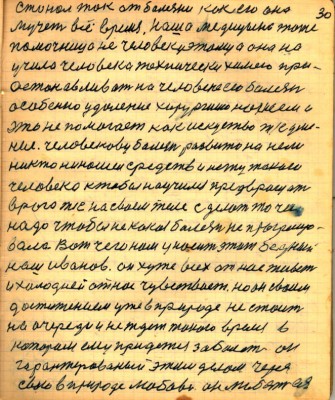 30
стонал так от болезни как его она
мучет всё время, наша медицина тоже
помочница не человеку этому а она на
учила человека технически химею при-
останавливат на человека его болезн
особенно удаление хирургиею ножем а
это не помогает как искуство т/с
ние. человекову болезн развито на нем
никто никаких средств и нету такого
человека кто бы научился предвращат
врага т/с на своем теле сделат то что
надо чтобы не какая болезн не
вала Вот чего нам у носит этим бедный
наш иванов. он хуже всех от нас живет
и холодней от нас чувствует, но он своим
достижением уже в природе не стоит
на очереди и не ждет такого время в
котором ему придется заболет он
гарантированый этим делом через
свою в природе любовь он любят её